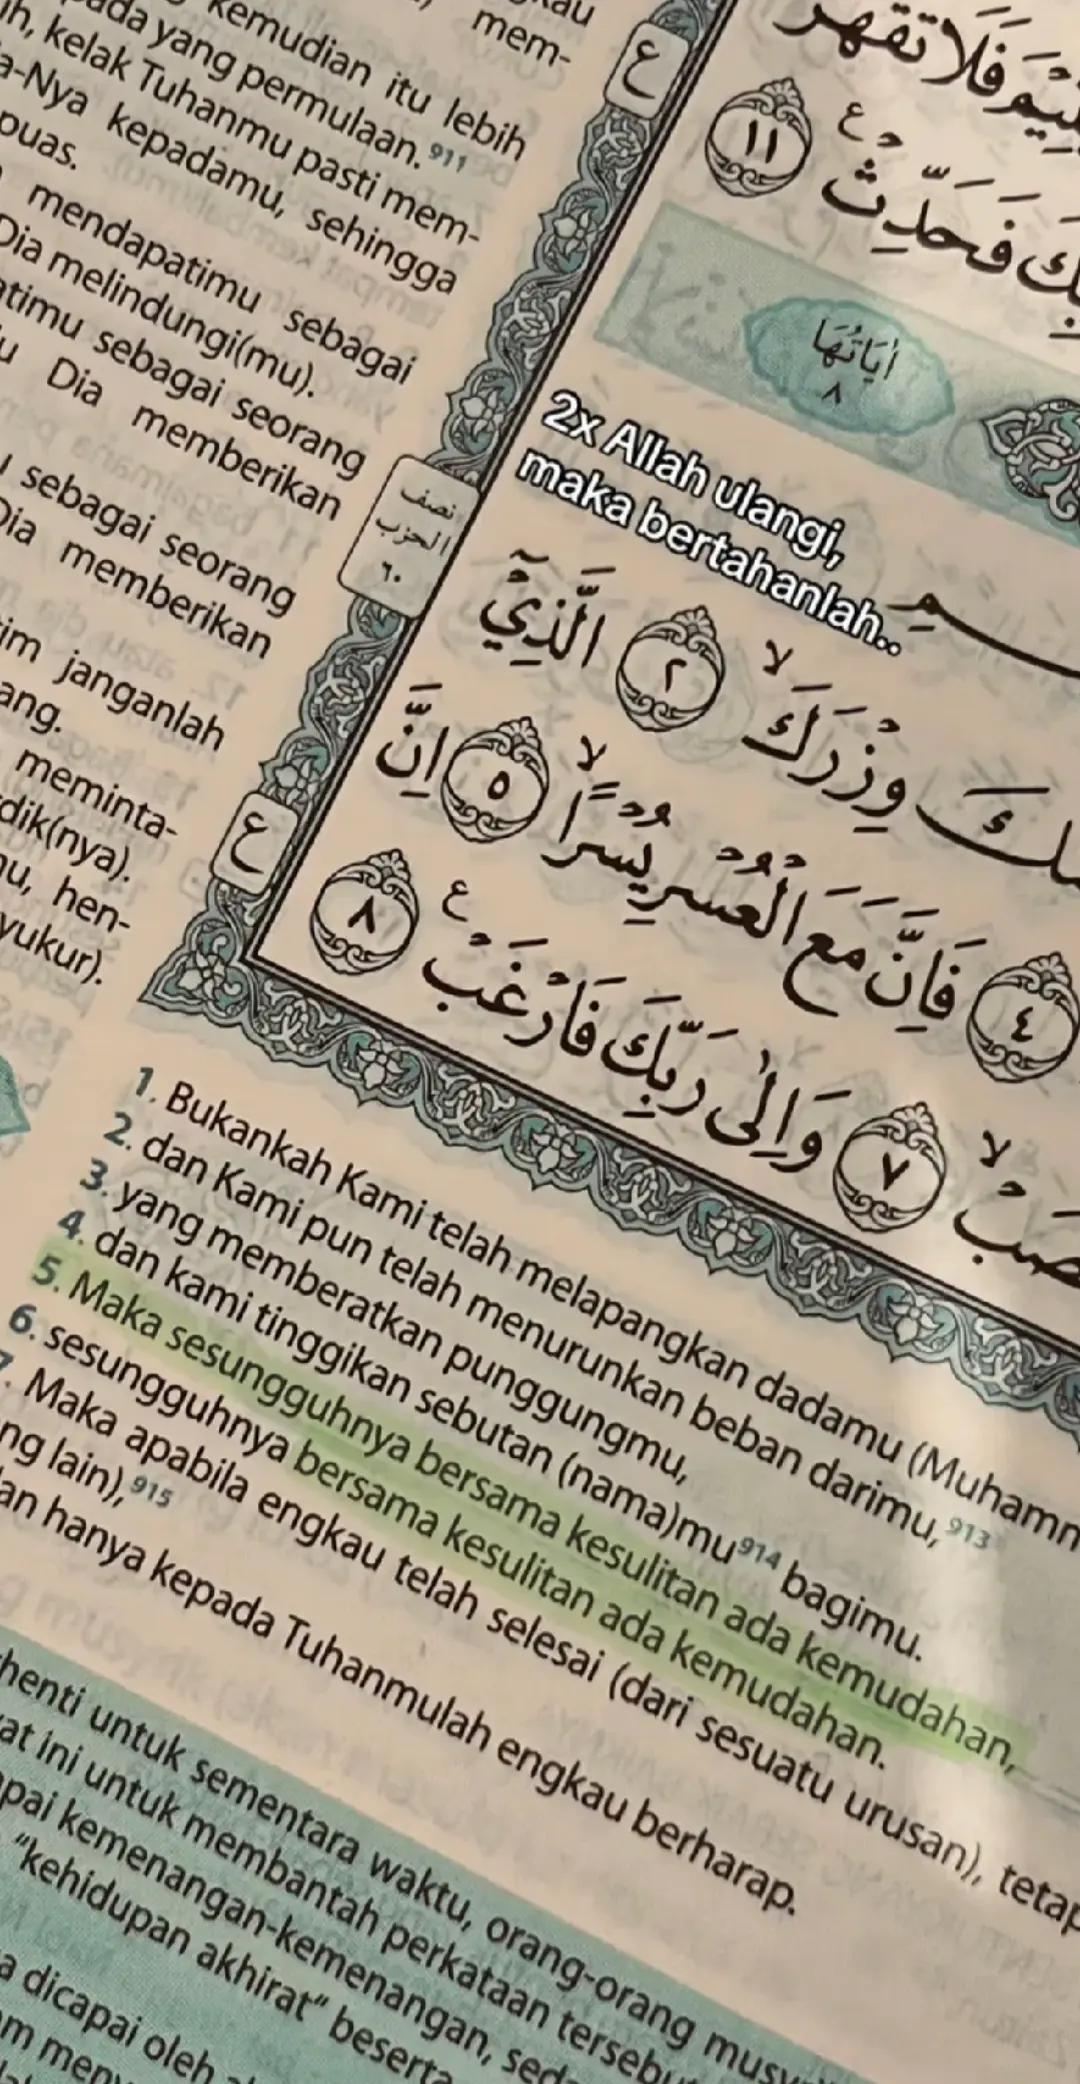 kemudian itu lebih
pada yang permulaan. 911
kelak Tuhanmu pasti mem-
a-Nya kepadamu, sehingga
puas.
mendapatimu sebagai
Dia melindungi(mu).
sebagai seorang
Dia memberikan
sebagai seorang
Dia memberikan
janganlah
meminta-
hen-
ع
١١
فَحَدِّثْ ࣖ
اٰيَاتُهَا
٨
2x Allah ulangi,
maka bertahanlah..
نصف
الحزب
٦٠
وِزْرَكَۙ ٢ الَّذِيْٓ
٤ فَاِنَّ مَعَ الْعُسْرِ يُسْرًاۙ ٥ اِنَّ
٧ وَاِلٰى رَبِّكَ فَارْغَبْ ࣖ ٨
ع
1. Bukankah Kami telah melapangkan dadamu (Muhamm
2. dan Kami pun telah menurunkan beban darimu, 913
3. yang memberatkan punggungmu,
4. dan kami tinggikan sebutan (nama)mu 914 bagimu.
5. Maka sesungguhnya bersama kesulitan ada kemudahan,
6. sesungguhnya bersama kesulitan ada kemudahan.
7. Maka apabila engkau telah selesai (dari sesuatu urusan), tetap
ng lain), 915
hanya kepada Tuhanmulah engkau berharap.
henti untuk sementara waktu, orang-orang
ini untuk membantah perkataan
kemenangan-kemenangan,
"kehidupan akhirat" beserta
dicapai oleh